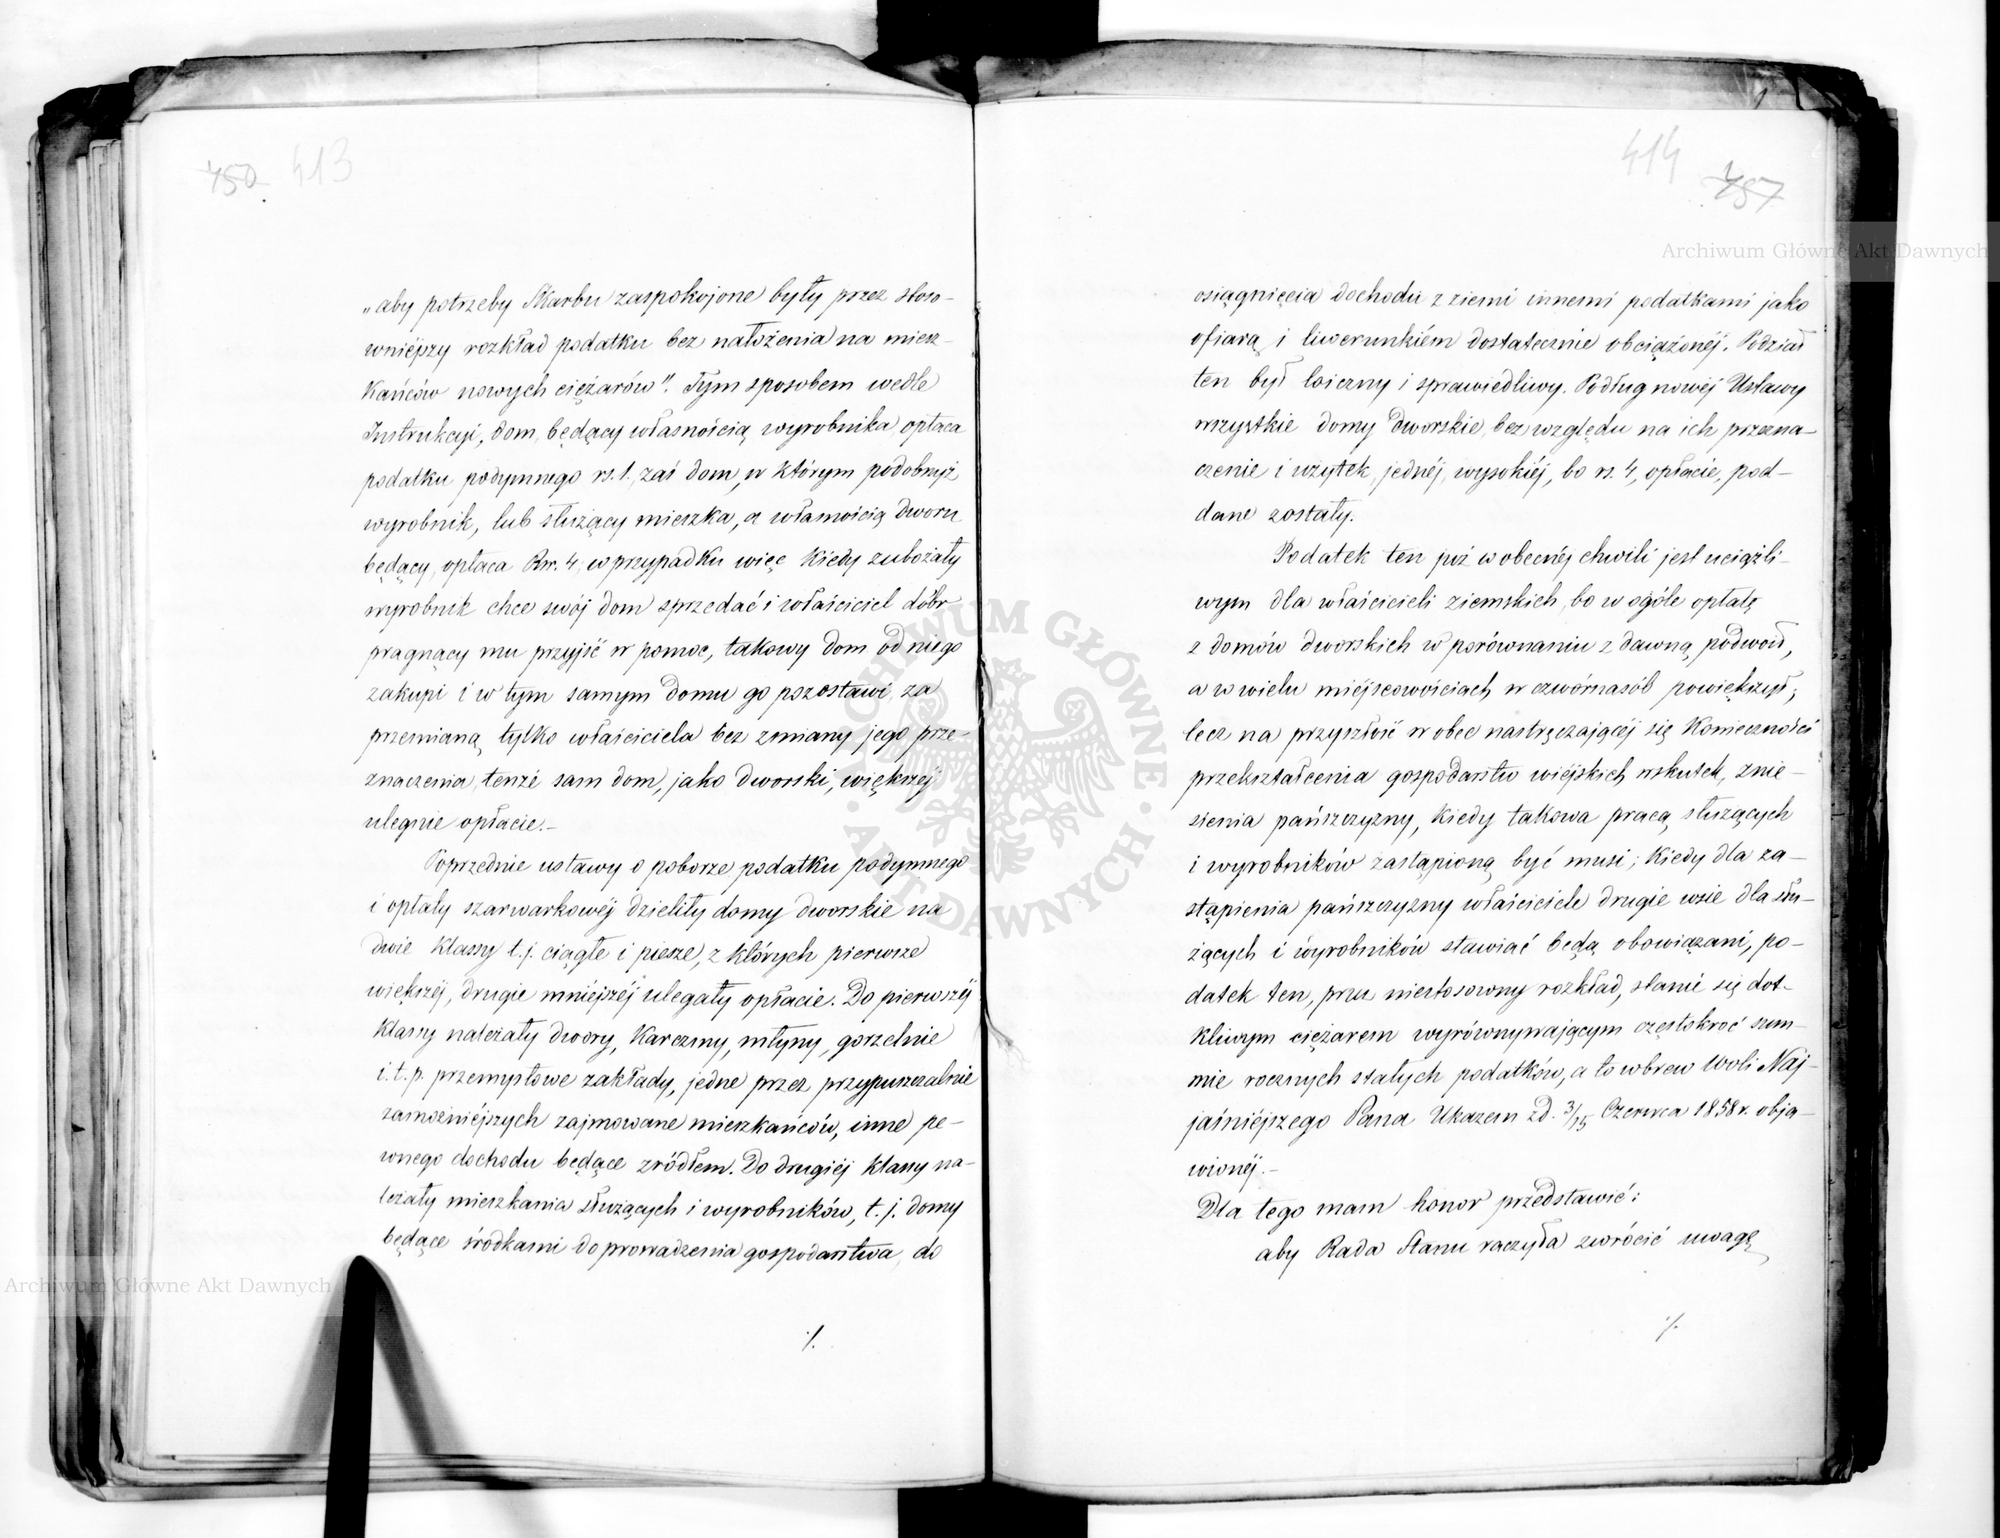 750 413
„aby potrzeby Skarbu zaspokojone były przez stoso-
wniejszy rozkład podatku bez nałożenia na miesz-
kańców nowych ciężarów". Tym sposobem wedle
Instrukcyi, dom będący własnością wyrobnika opłaca
podatku podymnego rs. 1. zaś dom, w którym podobnyż
wyrobnik, lub służący mieszka, a własnością dworu
będący, opłaca Rsr. 4, w przypadku więc kiedy zubożały
wyrobnik chce swój dom sprzedać i właściciel dóbr
pragnący mu przyjść w pomoc, takowy dom od niego
zakupi i w tym samym domu go pozostawi, za
przemianą tylko właściciela bez zmiany jego prze-
znaczenia, tenże sam dom, jako dworski, większej
ulegnie opłacie.-
Poprzednie ustawy o poborze podatku podymnego
i opłaty szarwarkowéj dzieliły domy dworskie na
dwie klassy t. j. ciągłe i piesze, z których pierwsze
większéj, drugie mniejszéj ulegały opłacie. Do pierwszéj
klassy należały dwory, karczmy, młyny, gorzelnie
i. t. p. przemysłowe zakłady, jedne przez przypuszczalnie
zamożniéjszych zajmowane mieszkańców, inne pe-
wnego dochodu będące zródłem. Do drugiéj klassy na-
leżały mieszkania służących i wyrobników, t. j. domy
będące środkami do prowadzenia gospodarstwa, do
./.
Archiwum Główne Akt Dawnych
414 757
Archiwum Główne Akt Dawnych
osiągnięcia dochodu z ziemi innemi podatkami jako
ofiarą i liwerunkiém dostatecznie obciążonéj. Podział
ten był loiczny i sprawiedliwy. Podług nowéj Ustawy
wszystkie domy dworskie, bez względu na ich przezna-
czenie i użytek, jednéj, wysokiéj, bo rs. 4, opłacie, pod-
dane zostały.
Podatek ten już w obecnéj chwili jest uciążli-
wym dla właścicieli ziemskich, bo w ogóle opłatę
z domów dworskich w porównaniu z dawną, podwoił,
a w wielu miéjscowościach w czwórnasób powiększył;
lecz na przyszłość w obec nastręczającéj się konieczności
przekształcenia gospodarstw wiéjskich wskutek, znie-
sienia pańszczyzny, kiedy takowa pracą służących
i wyrobników zastąpioną być musi; kiedy dla za-
stąpienia pańszczyzny właściciele drugie wsie dla słu-
żących i wyrobników stawiać będą obowiązani, po-
datek ten, przez niestosowny rozkład, stanie się dot-
kliwym ciężarem wyrównywającym częstokroć sum-
mie rocznych stałych podatków, a to wbrew Woli Naj-
jaśniéjszego Pana Ukazem z d. 3/15 Czerwca 1858 r. obja-
wionéj.-
Dla tego mam honor przedstawić:
aby Rada Stanu raczyła zwrócić uwagę
./.
ARCHIWUM GŁÓWNE · AKT DAWNYCH ·